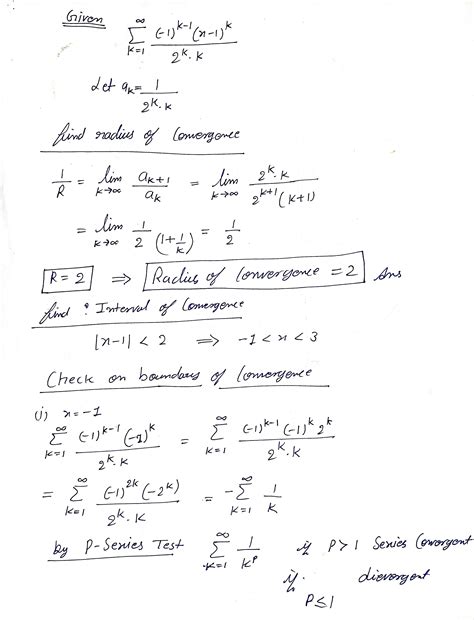 Given ∞ Σ k=1 (-1)^{k-1} (x-1)^k / 2^k · k
Let a_k = 1 / 2^k · k
find radius of Convergence
1/R = lim k→∞ a_{k+1} / a_k = lim k→∞ 2^k · k / 2^{k+1} (k+1)
= lim k→∞ 1 / 2 (1 + 1/k) = 1/2
R = 2 ⇒ Radius of Convergence = 2 Ans
find : Interval of Convergence
|x-1| < 2 ⇒ -1 < x < 3
Check on boundary of Convergence
(i) x = -1
∞ Σ k=1 (-1)^{k-1} (-2)^k / 2^k · k = ∞ Σ k=1 (-1)^{k-1} (-1)^k 2^k / 2^k · k
= ∞ Σ k=1 (-1)^{2k} (-2^k) / 2^k · k = - ∞ Σ k=1 1/k
by P-Series Test ∞ Σ k=1 1/k^p if P > 1 Series Convergent
if divergent
P ≤ 1